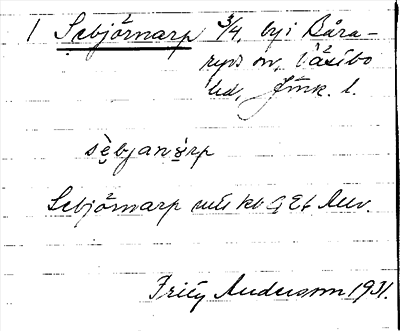 1 Sebjörnarp 3/4, by i Båra-
ryds sn, Västbo
hd, Jönk. l.
sè̤bjanàrp
Sebjörnarp
Fritz Andersson 1931.